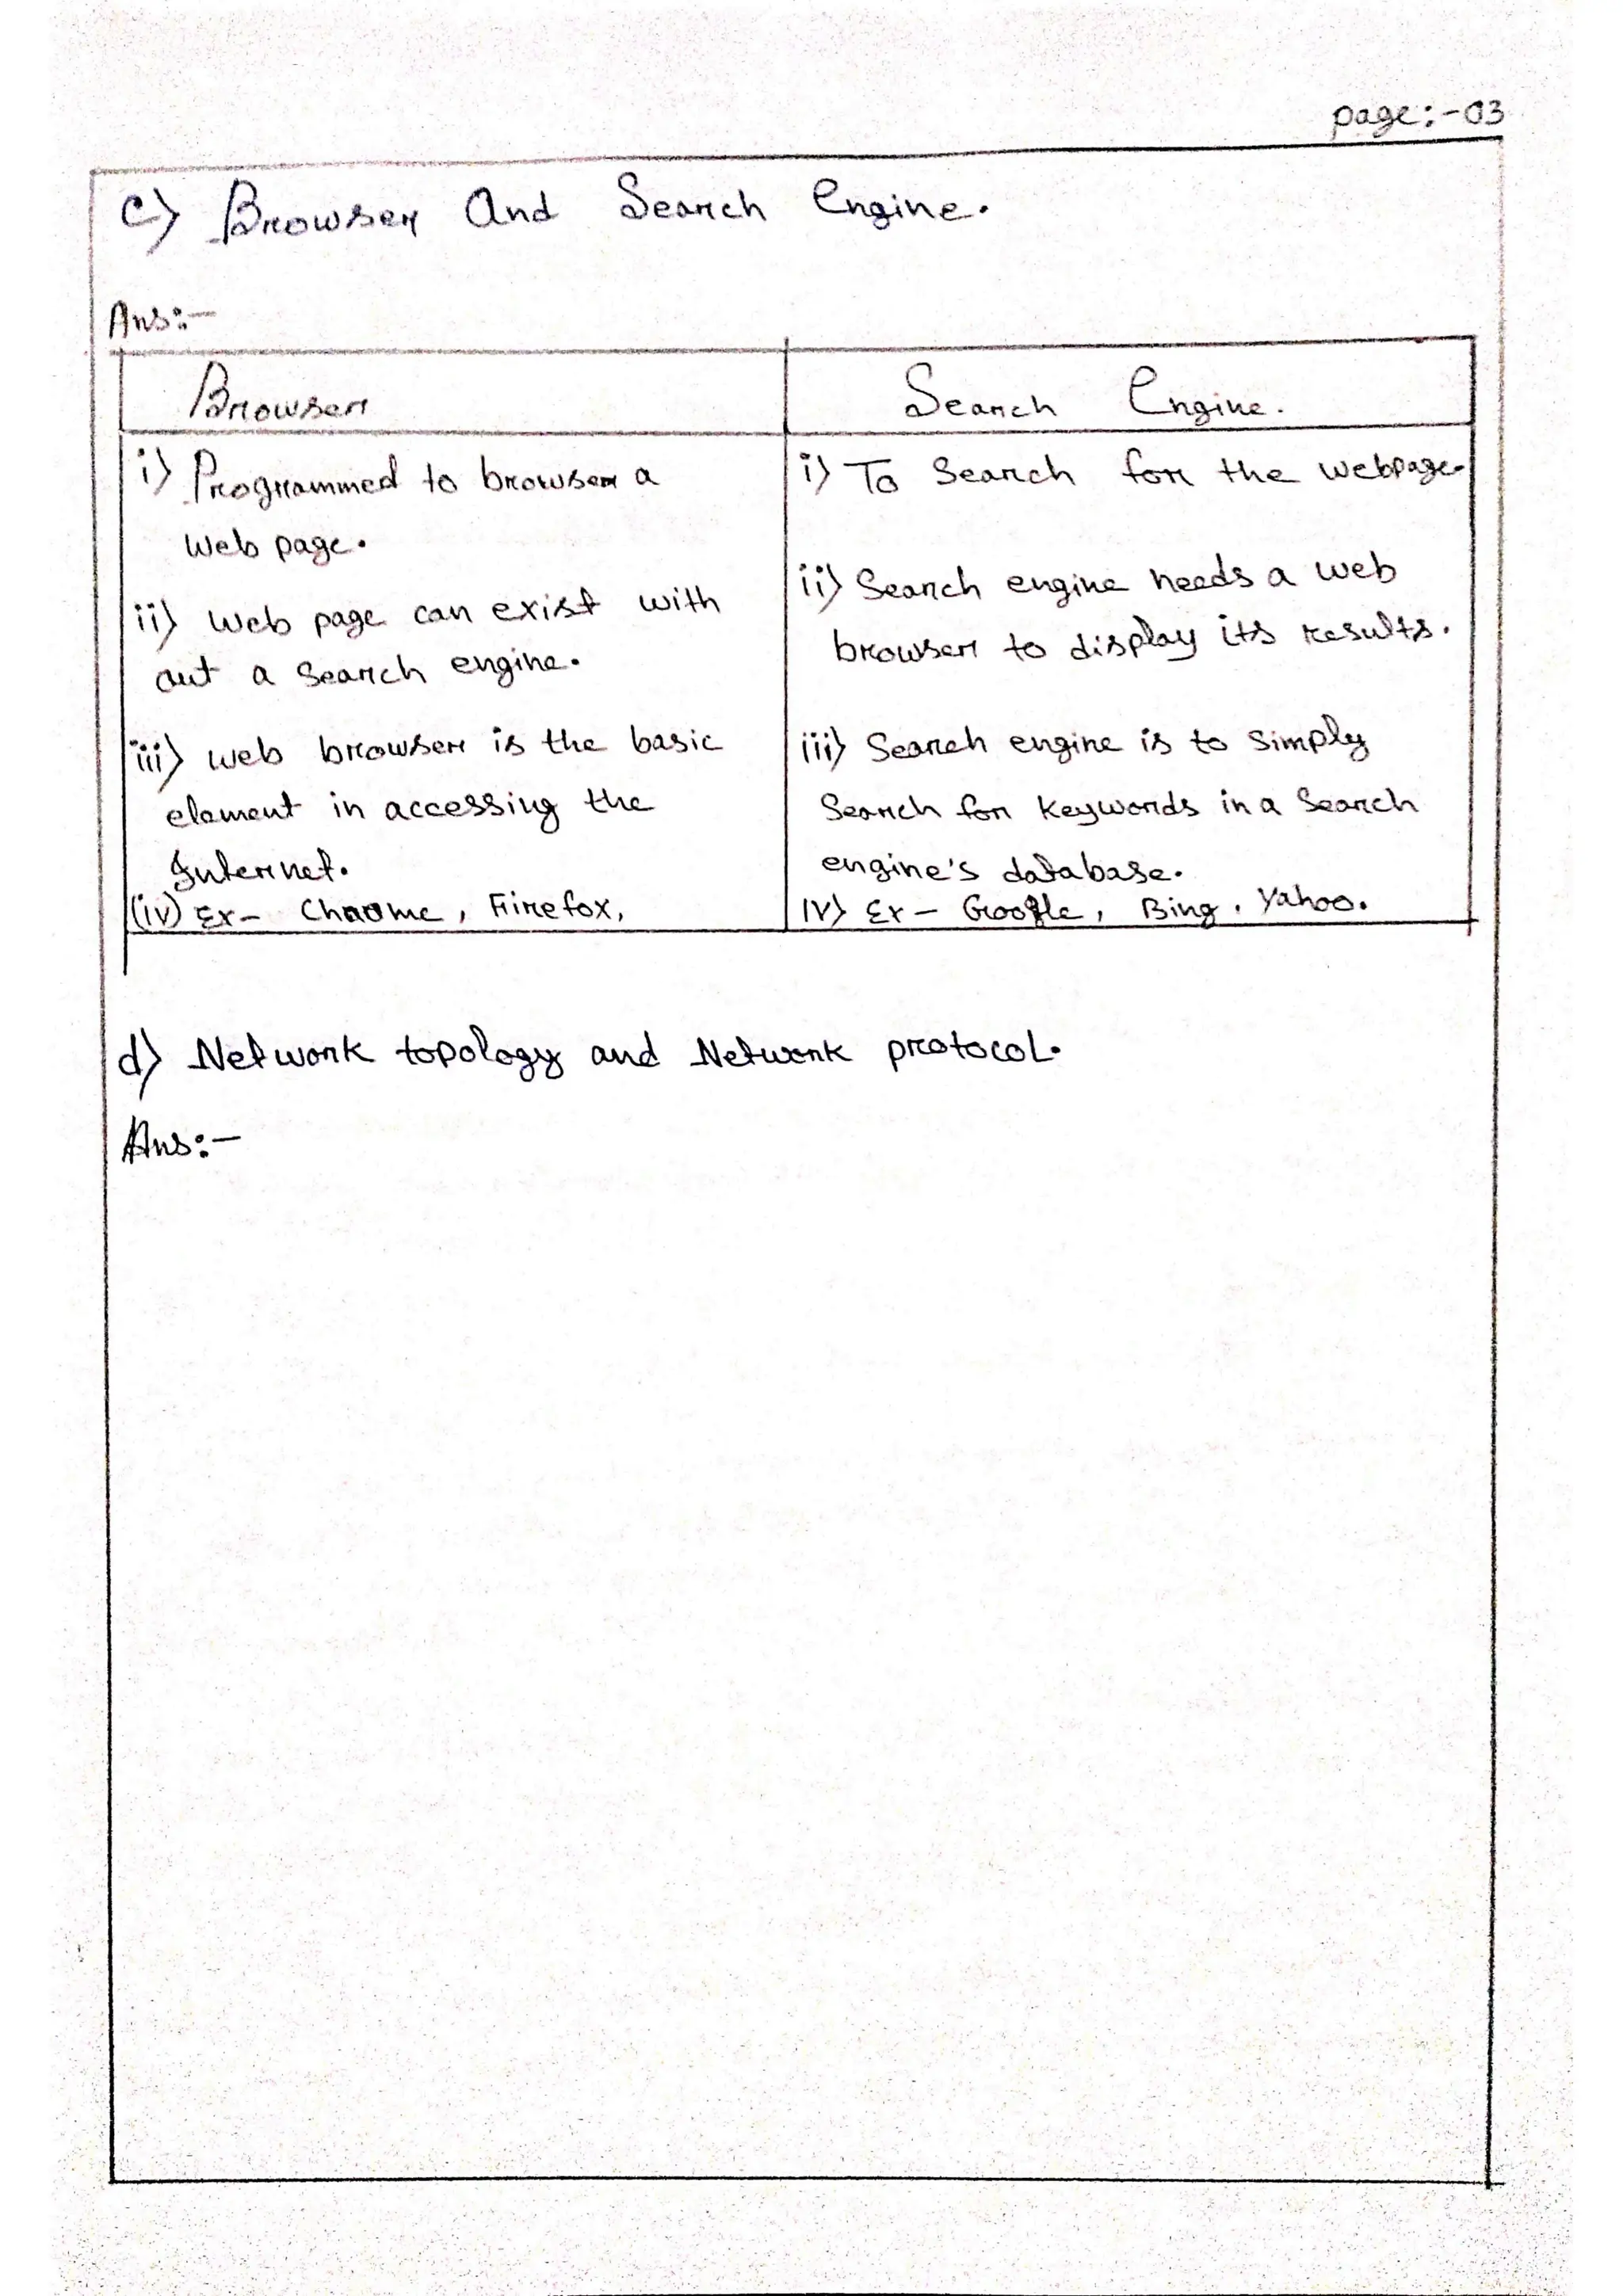 page:-03
c) Browser And Search Engine.
Ans:-
Browser
Search Engine.
i) Programmed to browser a
web page.
ii) Web page can exist with
out a Search engine.
iii) web browser is the basic
element in accessing the
Internet.
(iv) Ex- Chrome, Firefox,
i) To Search for the webpage.
ii) Search engine needs a web
browser to display its results.
iii) Search engine is to simply
Search for keywords in a Search
engine's database.
IV) Ex - Google, Bing, Yahoo.
d) Network topology and Network protocol.
Ans:-